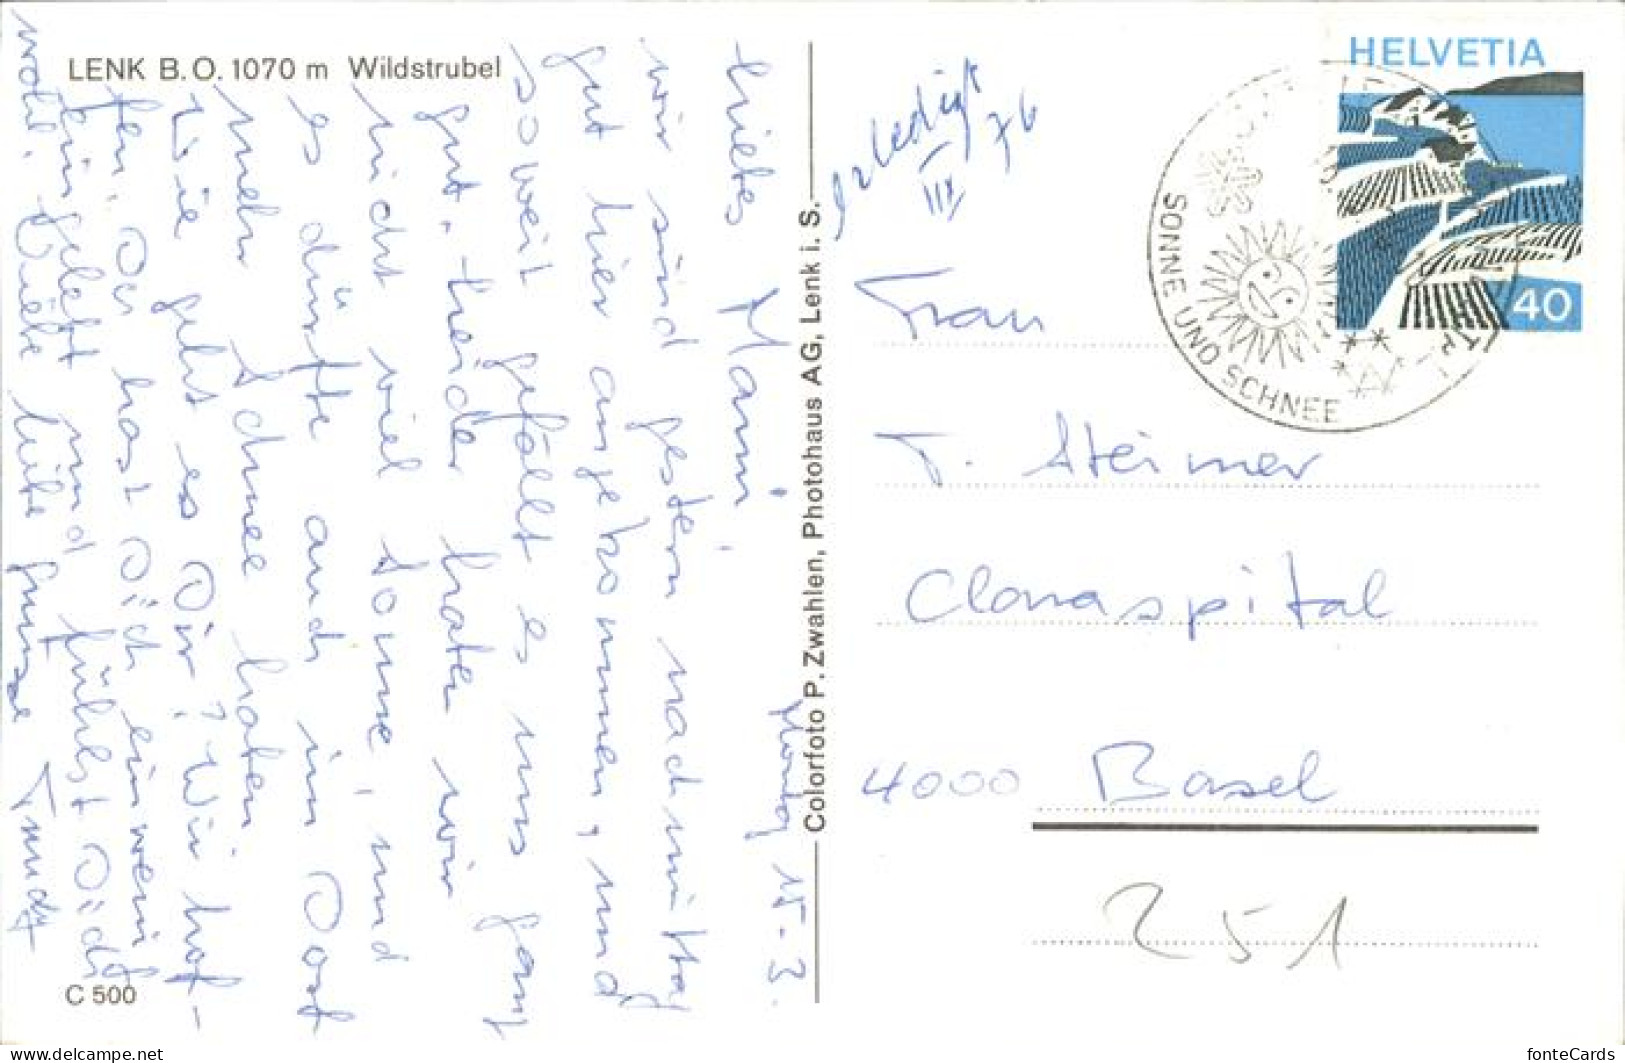 LENK B.O. 1070 m Wildstrubel
Montag 15-3.
Liebes Mami,
wir sind gestern nachmittag
gut hier angekommen, und
soweit gefällt es uns ganz
gut. Leider haben wir
nicht viel Sonne, und
es dürfte auch im Dorf
mehr Schnee haben.
Wie geht es Dir? Wir hof-
fen, Du hast Dich ein wenig
eingelebt und fühlst Dich
wohl. Viele liebe Grüsse
C 500
Colorfoto P. Zwahlen, Photohaus AG, Lenk i. S.
erledigt
III 76
HELVETIA
40
SONNE UND SCHNEE
Frau
T. Steimer
Claraspital
4000 Basel
251
fonteCards
www.delcampe.net